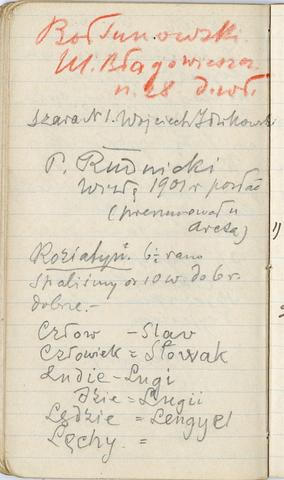 Bołtunowski
M. Błagowieszcz.
n. 28 d. wł.
szara N 1. Wojciech
P. Rudnicki
1901 r posłać
(prenumerował u
Koziatyń. 6½ rano
Spaliśmy od 10 w. dobr.
dobrze.-
Człow - Slav
Człowiek = Słowak
Ludie - Lugi
dzie = Lugii
Lędzie = Lengyel
Lęchy. =
1)